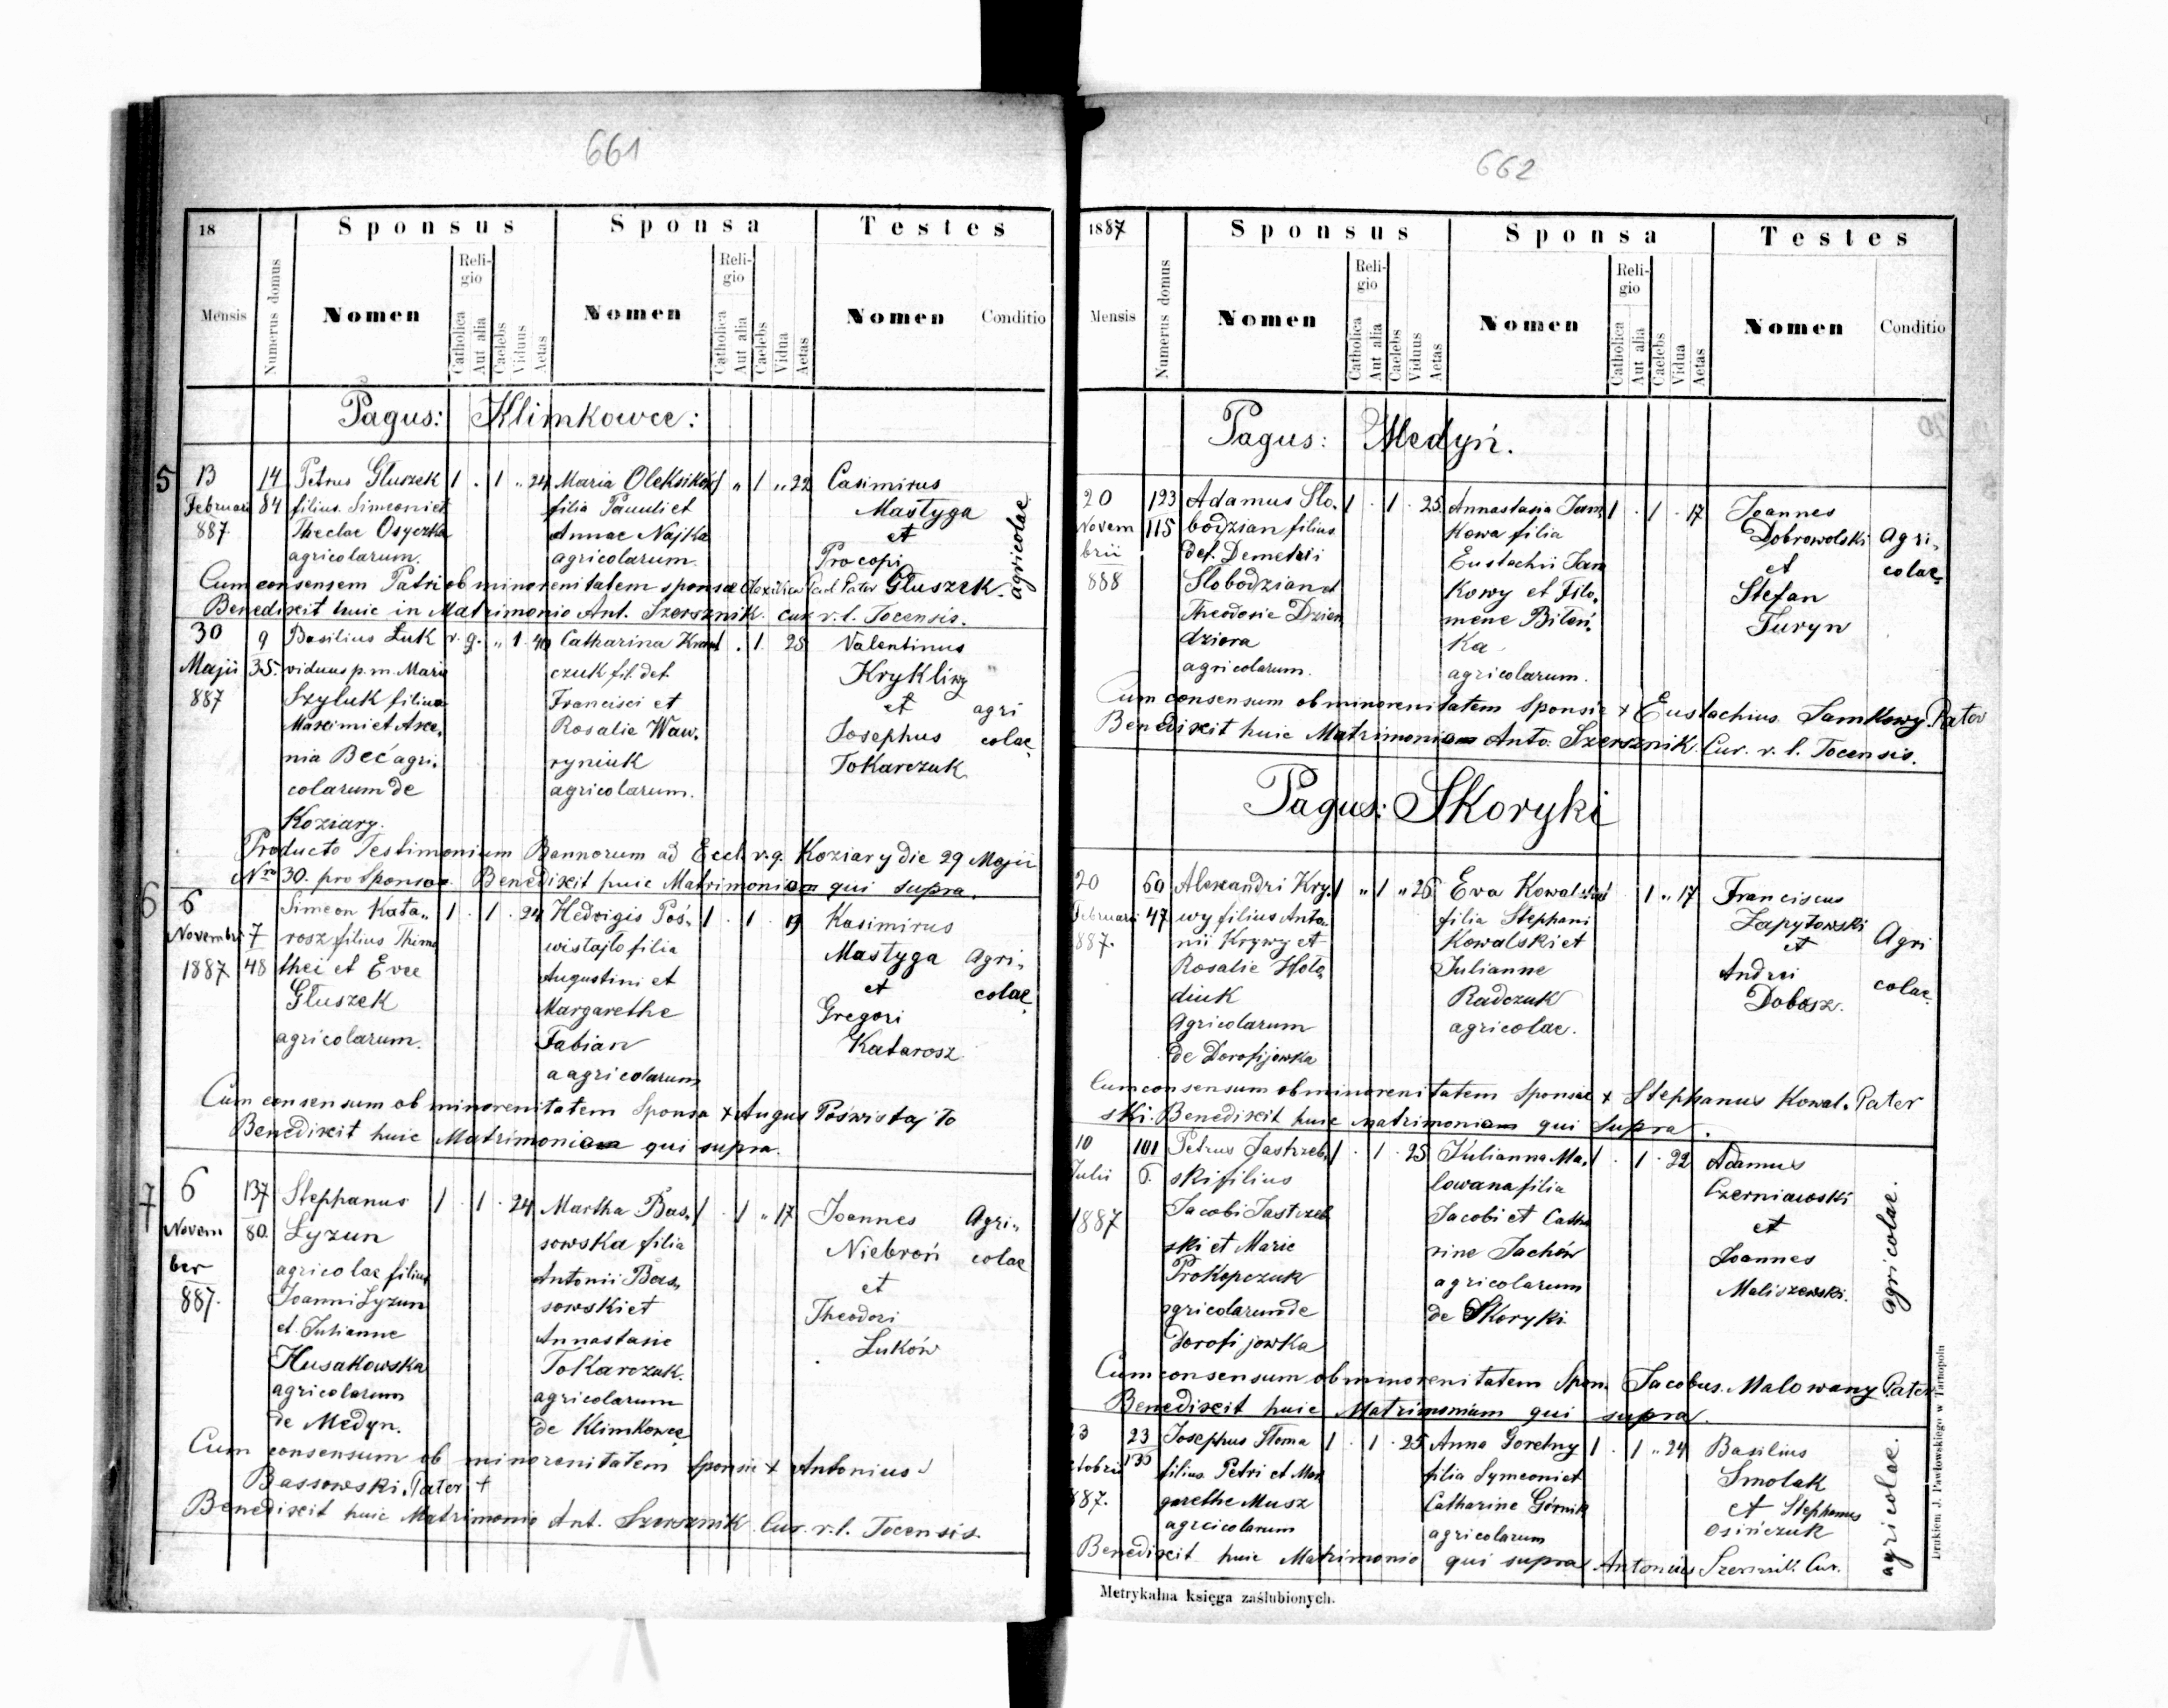 661
18
Sponsus
Sponsa
Testes
Mensis
Numerus domus
Nomen
Religio
Catholica
Aut alia
Caelebs
Viduus
Aetas
Nomen
Religio
Catholica
Aut alia
Caelebs
Vidua
Aetas
Nomen
Conditio
Pagus: Klimkowce:
5
13
Februari
887
14
84
Petrus Gluszek
filius Simeoni et
Theclae Osyczka
agricolarum.
1 . 1 " 24
Maria Oleksików
filia Pauuli et
Annae Najka
agricolarum.
1 " 1 " 22
Casimirus
Mastyga
et
Procopi
Gluszek.
agricolae.
Cum consensem Patri ob minorenitatem sponsae Pater
Benedixit huic in Matrimonio Ant. Szersznik. cur r. l. Tocensis.
30
Majii
887
9
35.
Basilius Łuk
viduus p. m. Marie
Szyluk filius
Maximi et Axe,
nia Beć agri,
colarum de
Koziary.
r. g. " 1 . 40
Catharina Kraw
czuk fil. def.
Francisci et
Rosalie Waw,
ryniuk
agricolarum.
. 1 . 28
Valentinus
Krykliwy
et
Josephus
Tokarczuk
agri
colae,
Producto Testimonium Bannorum ad Eccl. r. g. Koziary die 29 Majii
Nro 30. pro Sponso. Benedixit huic Matrimoniam qui supra.
6
6
Novembri
1887
7
48
Simeon Kata,,
rosz filius Thimo
thei et Eve
Głuszek
agricolarum.
1 . 1 . 24
Hedvigis Poś,
wistajło filia
Augustini et
Margarethe
Fabian
aagricolarum
1 . 1 . 19
Kasimirus
Mastyga
et
Gregori
Katarosz
Agri,,
colae,
Cum consensum ob minorenitatem Sponsa + Augus Poświstajło
Benedixit huic Matrimoniam qui supra.
7
6
Novem
ber
887.
137
80.
Stephanus
Lyzun
agricolae filius
Joanni Lyzun
et Julianne
Husakowska
agricolarum
de Medyn.
1 . 1 . 24
Martha Bas,
sowska filia
Antonii Bas,
sowski et
Annastasie
Tokarczuk.
agricolarum
de Klimkowce
1 . 1 " 17
Joannes
Niebroń
et
Theodori
Luków
Agri,,
colae
Cum consensum ob minorenitatem Sponsie + Antonius
Bassowski. Pater +
Benedixit huic Matrimonio Ant. Szersznik Cur. r. l. Tocensis.
662
1887
Sponsus
Sponsa
Testes
Mensis
Numerus domus
Nomen
Religio
Catholica
Aut alia
Caelebs
Viduus
Aetas
Nomen
Religio
Catholica
Aut alia
Caelebs
Vidua
Aetas
Nomen
Conditio
Pagus: Medyń.
20
Novem
brii
888
123
115
Adamus Slo,
bodzian filius
def. Demetrii
Slobodzian et
Theodosie Dzien
dziora
agricolarum.
1 . 1 . 25.
Annastasia Jam
kowa filia
Eustachii Jam
kowy et Filo,
mene Biloń,
ka
agricolarum.
1 . 1 . 17
Joannes
Dobrowolski
et
Stefan
Turyn
Agri,
colae,
Cum consensum ob minorenitatem Sponsie + Eustachius Jamkowy. Pater
Benedixit huic Matrimoniam Anto. Szersznik. Cur. r. l. Tocensis.
Pagus: Skoryki
20
Februari
887.
60
47
Alexandri Kry,
wy filius Anto,
nii Krywy et
Rosalie Holo,
diuk
agricolarum
de Dorofijowka
1 " 1 " 26
Eva Kowalska
filia Stephani
Kowalski et
Julianne
Radczuk
agricolae.
1 " 17
Franciscus
Zapytowski
et
Andrei
Dobosz.
Agri
colae,
Cum consensum ob minorenitatem Sponsae + Stephanus Kowal, Pater
ski. Benedixit huic matrimoniam qui Supra.
10
Julii
1887
101
6.
Petrus Jastrzeb,
ski filius
Jacobi Jastrzeb
ski et Marie
Prokopczuk
agricolarum de
Dorofijowka
1 . 1 . 25
Julianna Ma,
lowana filia
Jacobi et Catha
rine Jachów
agricolarum
de Skoryki.
1 . 1 . 22
Adamus
Czerniawski
et
Joannes
Maliszewski.
agricolae.
Cum consensum ob minorenitatem Spon. Jacobus Malowany Pater
Benedixit huic Matrimonium qui supra.
3
ctobrii
887.
23
135
Josephus Słoma
filius Petri et Mar
garethe Musz
agricolarum
1 . 1 . 25
Anna Goretny
filia Symeoni et
Catharine Górnik
agricolarum
1 . 1 " 24
Basilius
Smolak
et Stephanus
Osińczuk
agricolae.
Benedixit huic Matrimonio qui supra Antonius Cur.
Metrykalna księga zaślubionych.
Drukiem J. Pawłowskiego w Tarnopolu